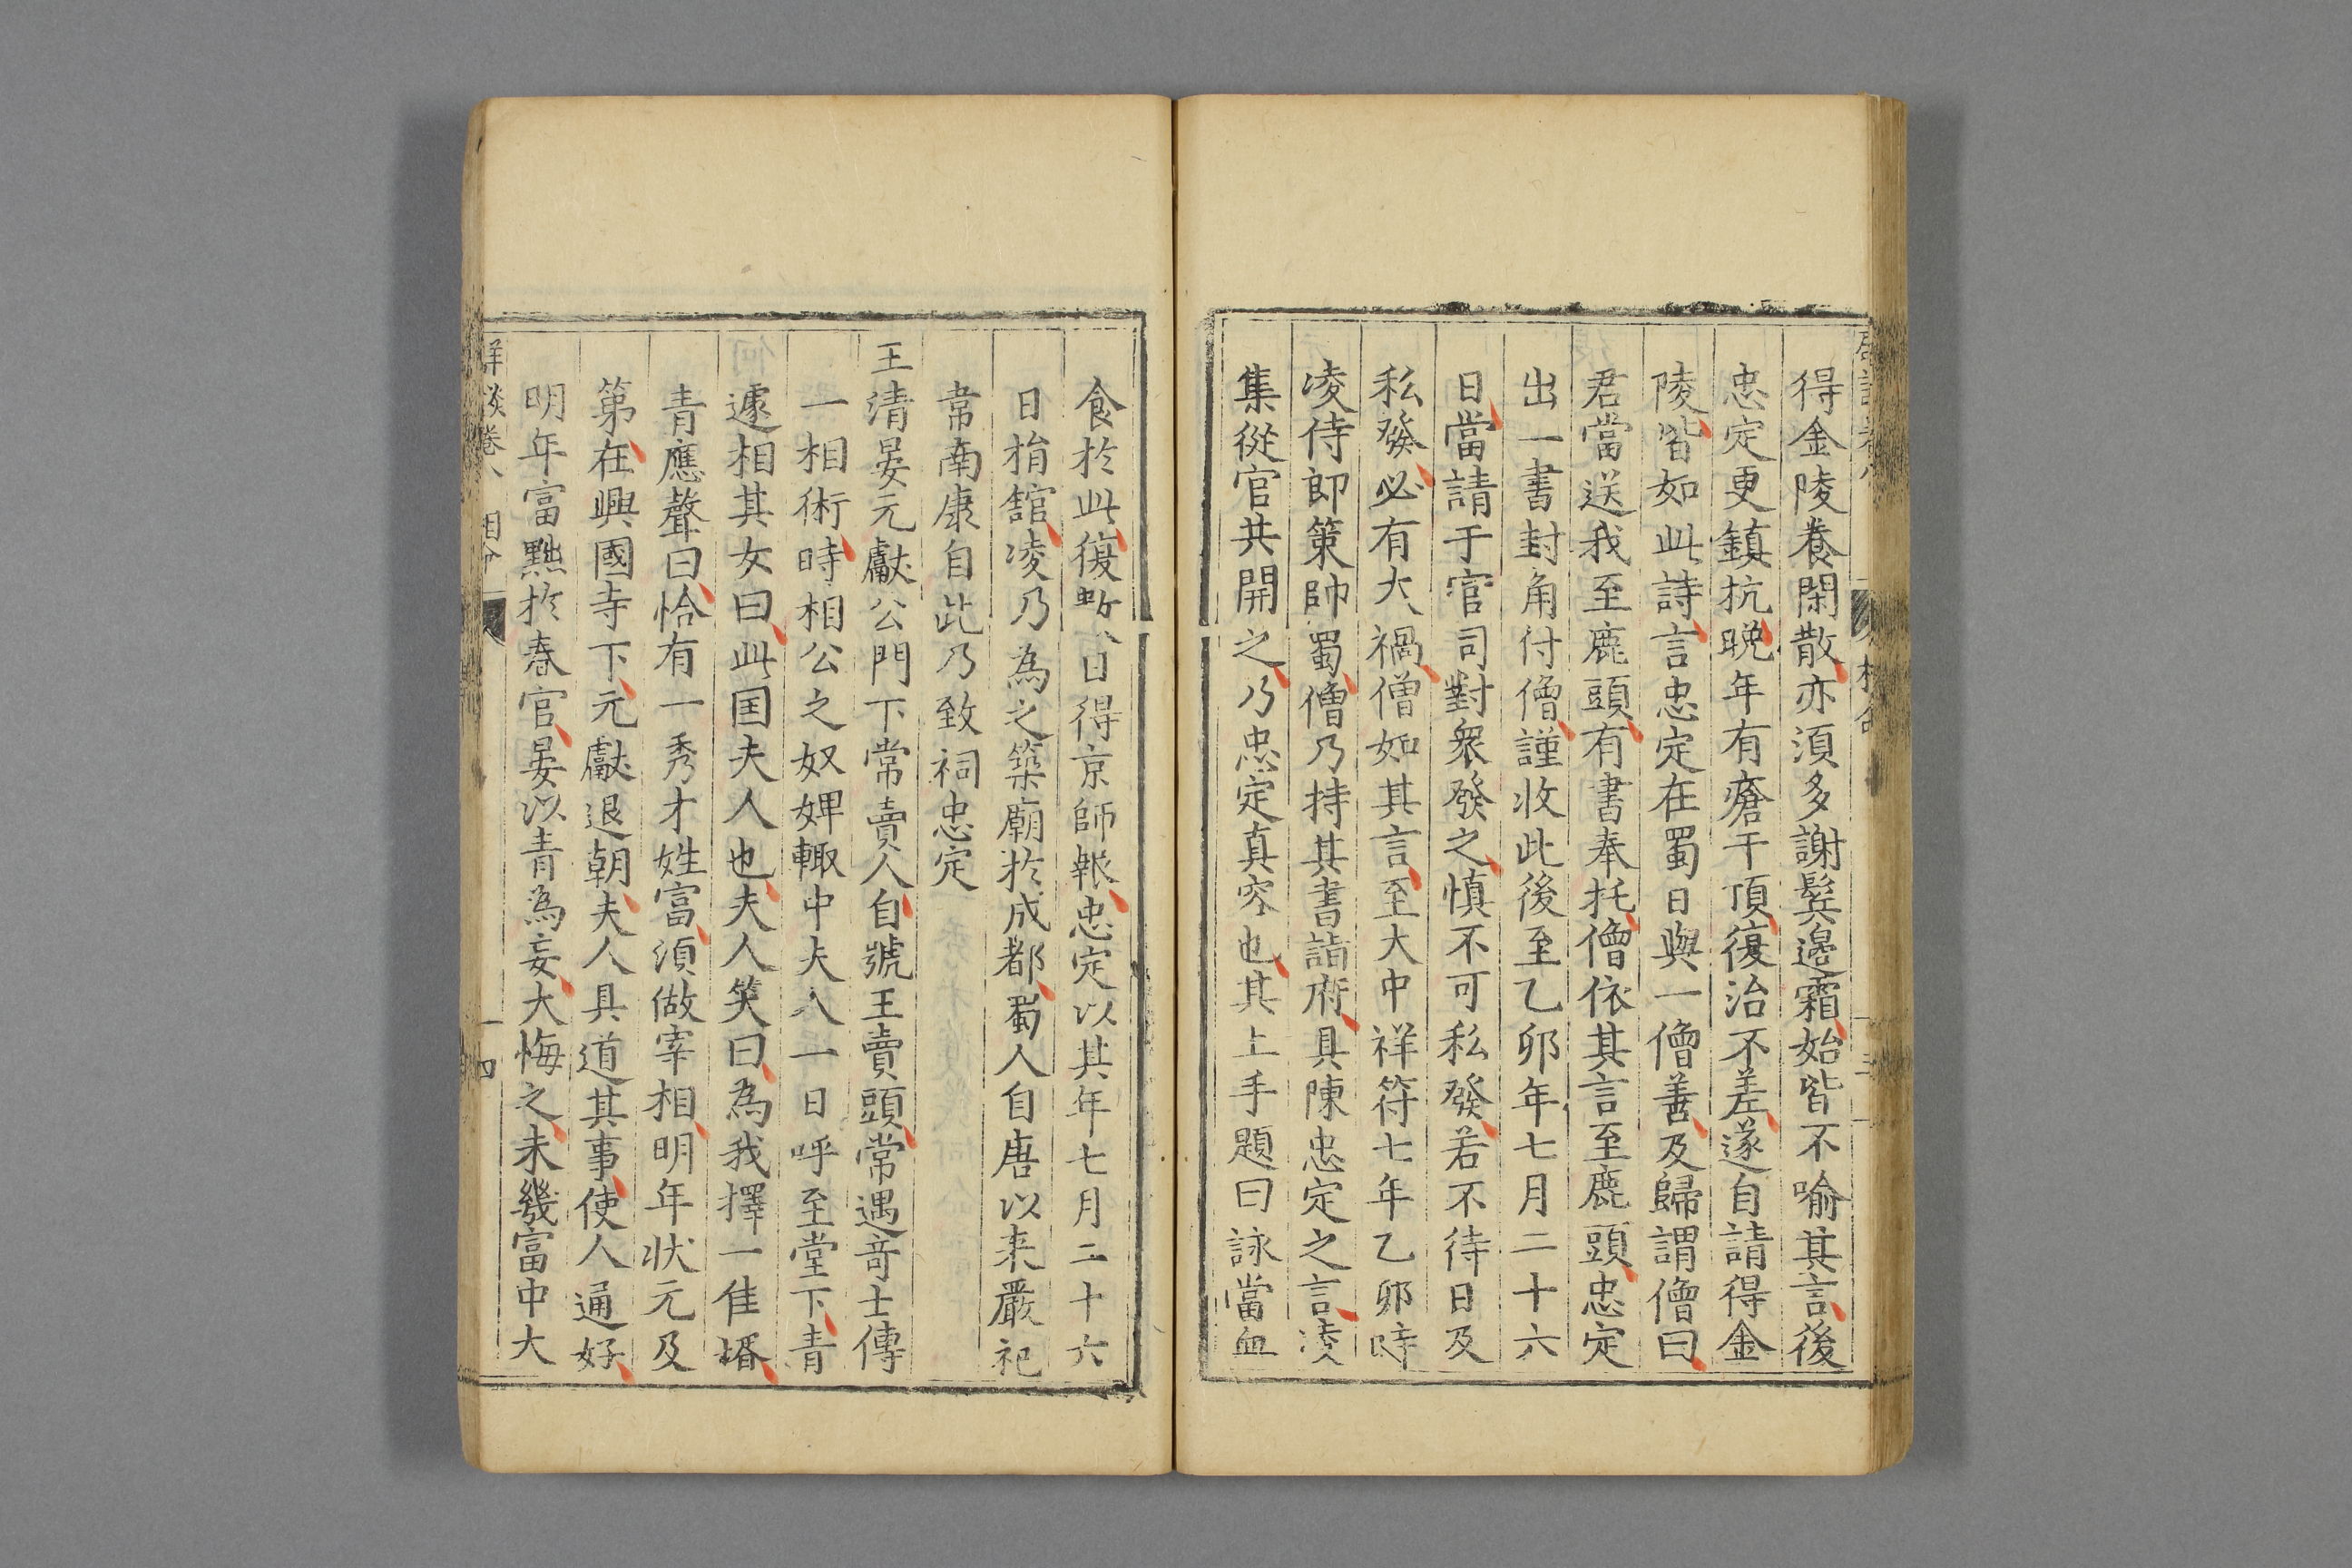 得金陵養閑散亦須多謝鬂邊霜始皆不喻其言後
忠定更鎮抗晚年有瘡于項復治不差遂自請得金
陵皆如此詩言忠定在蜀日與一僧善及歸謂僧曰
君當送我至鹿頭有書奉托僧依其言至鹿頭忠定
出一書封角付僧謹收此後至乙卯年七月二十六
日當請于官司對衆發之慎不可私發若不待日及
私發必有大禍僧如其言至大中祥符七年乙卯時
凌侍郎策帥蜀僧乃持其書詣府具陳忠定之言凌
集從官共開之乃忠定真容也其上手題曰詠當血
食於此復數日得京師報忠定以其年七月二十六
日捐舘凌乃為之築廟於成都蜀人自唐以來嚴祀
韋南康自此乃致祠忠定
王清晏元獻公門下常賣人自號王賣頭常遇奇士傳
一相術時相公之奴婢輙中夫人一日呼至堂下青
遽相其女曰此国夫人也夫人笑曰為我擇一佳壻
青應聲曰恰有一秀才姓富須做宰相明年状元及
第在興國寺下元獻退朝夫人具道其事使人通好
明年富黜於春官晏以青為妄大悔之未幾富中大
談卷八 一四